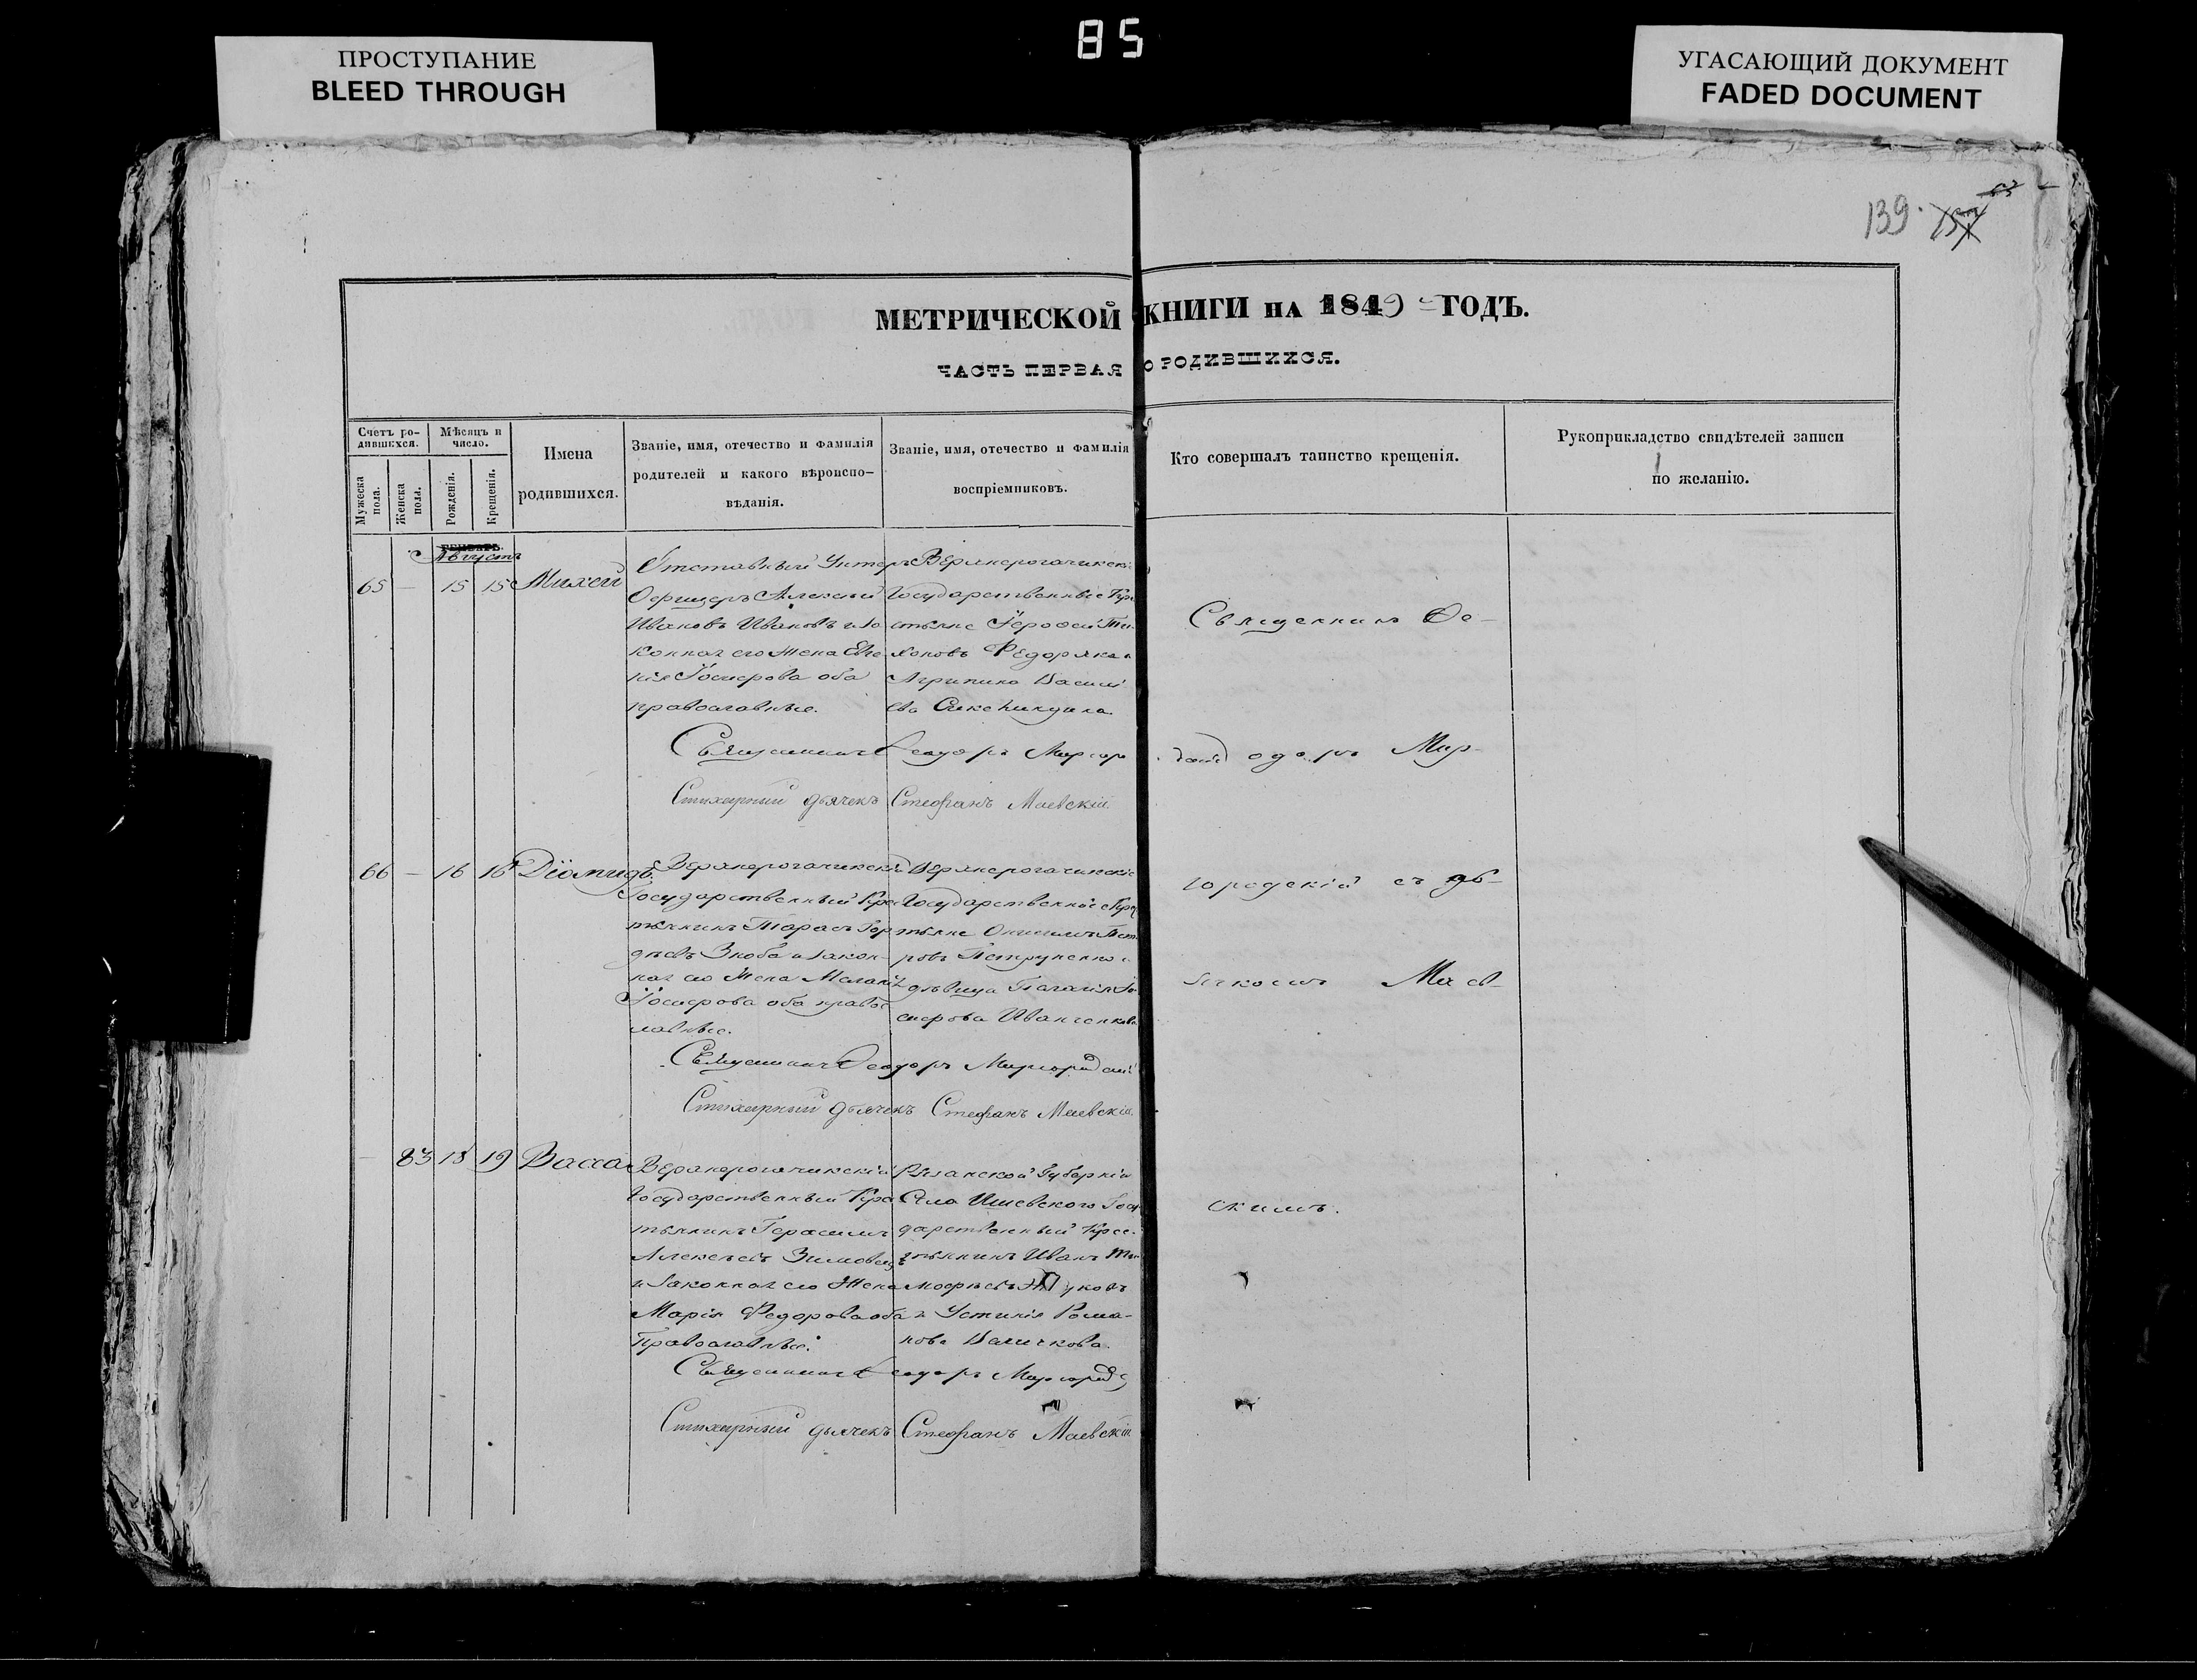 85
ПРОСТУПАНИЕ
BLEED THROUGH
УГАСАЮЩИЙ ДОКУМЕНТ
FADED DOCUMENT
139. 157
МЕТРИЧЕСКОЙ КНИГИ НА 1849 ГОДЪ.
ЧАСТЬ ПЕРВАЯ О РОДИВШИХСЯ.
Счетъ ро-
дившихся.
Мужеска
пола.
Женска
пола.
Мѣсяцъ и
число.
Рожденія.
Крещенія.
Имена
родившихся.
Званіе, имя, отечество и фамилія
родителей и какого вѣроиспо-
вѣданія.
Званіе, имя, отечество и фамилія
воспріемниковъ.
Кто совершалъ таинство крещенія.
Рукоприкладство свидѣтелей записи
по желанію.
Августъ
65 — 15 15 Михей
Отставный Унтеръ
Офицеръ Алексѣй
Ивановъ Ивановъ и за
конная его Жена Евге
нія Іосифова оба
православные.
Верхнерогачикскіе
Государственные Кре
стьяне Іерофей Ти
хоновъ Федоряка и
Агрипина Васильева
Священникъ Ѳеодоръ Миргородскій
Стихирный дьячекъ Стефанъ Маевскій
66 — 16 16 Діомидъ
Верхнерогачикскій
Государственный Кре
стьянинъ Тарасъ Гор
дѣевъ Зноба и закон
ная его Жена Меланія
Іосифова оба правос
лавные.
Верхнерогачикскіе
Государственные Кре
стьяне Онисимъ Пет
ровъ Петрупенко и
дѣвица Пелагія Іо
сифова Иванченкова
Священникъ Ѳеодоръ Миргородскій
Стихирный дьячекъ Стефанъ Маевскій
— 83 18 19 Васса
Верхнерогачикскій
Государственный Кре
стьянинъ Герасимъ
Алексѣевъ Зимовецъ
и Законная его Жена
Марія Федорова оба
Православные.
Рязанской Губерніи
Села Ижевского Госу
дарственный Крес
тьянинъ Иванъ Ти
мофѣевъ Жуковъ
и Устинія Рома-
нова Величкова.
Священникъ Ѳеодоръ Миргородс
Стихирный дьячекъ Стефанъ Маевскій
Священникъ Ѳе-
одоръ Мир-
городскій съ дь-
ячкомъ Маев-
скимъ.